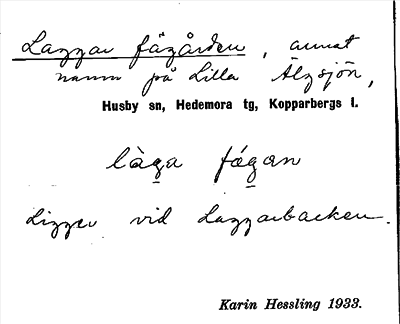 Laggar fägården, annat
namn på Lilla Älgsjön,
Husby sn, Hedemora tg, Kopparbergs l.
làga fágan
Ligger vid Laggarbacken.
Karin Hessling 1933.